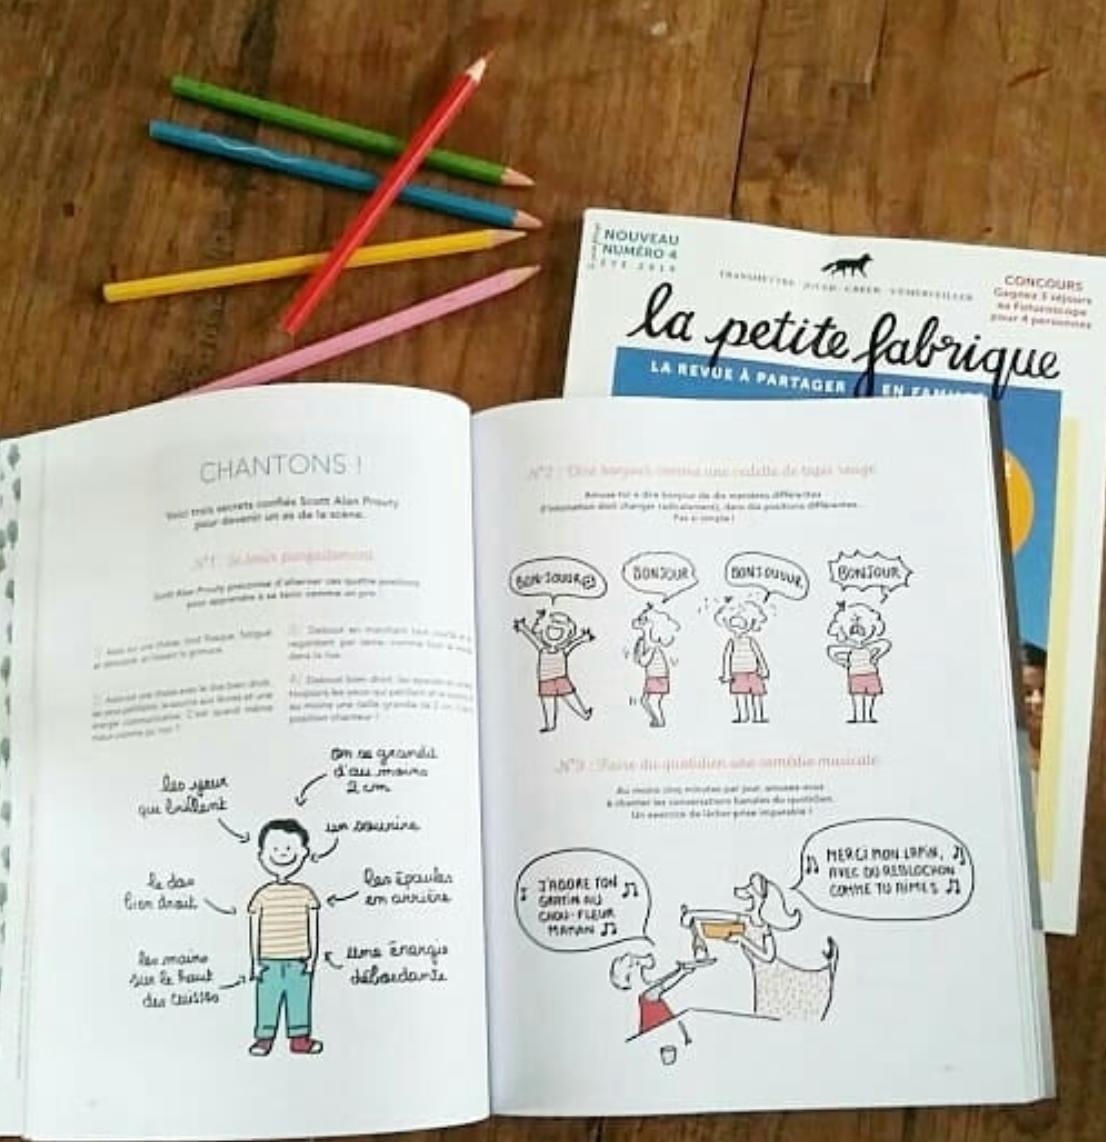 NOUVEAU
NUMÉRO 4
ÉTÉ 2019
TRANSMETTRE JOUER CRÉER S'ÉMERVEILLER
CONCOURS
Gagnez 3 séjours
au Futuroscope
pour 4 personnes
la petite fabrique
LA REVUE À PARTAGER EN FAMILLE
CHANTONS !
Voici trois secrets confiés Scott Alan Prouty
pour devenir un as de la scène.
N°1 : Se tenir parfaitement
Scott Alan Prouty préconise d'alterner ces quatre positions
pour apprendre à se tenir comme un pro :
les yeux
qui brillent
on se grandit
d'au moins
2 cm
un sourire
le dos
bien droit
les épaules
en arrière
les mains
sur le haut
des cuisses
une énergie
débordante
N°2 : Dire bonjour comme une vedette de tapis rouge
Amuse-toi à dire bonjour de dix manières différentes
l'intonation doit changer radicalement, dans dix positions différentes...
Pas si simple !
BON-JOUUR
BONJOUR
BONJOUUUR
BONJOUR
N°3 : Faire du quotidien une comédie musicale
Au moins cinq minutes par jour, amusez-vous
à chanter les conversations banales du quotidien.
Un exercice de lâcher-prise imparable !
J'ADORE TON
GRATIN AU
CHOU-FLEUR
MAMAN
MERCI MON LAPIN,
AVEC DU REBLOCHON
COMME TU AIMES